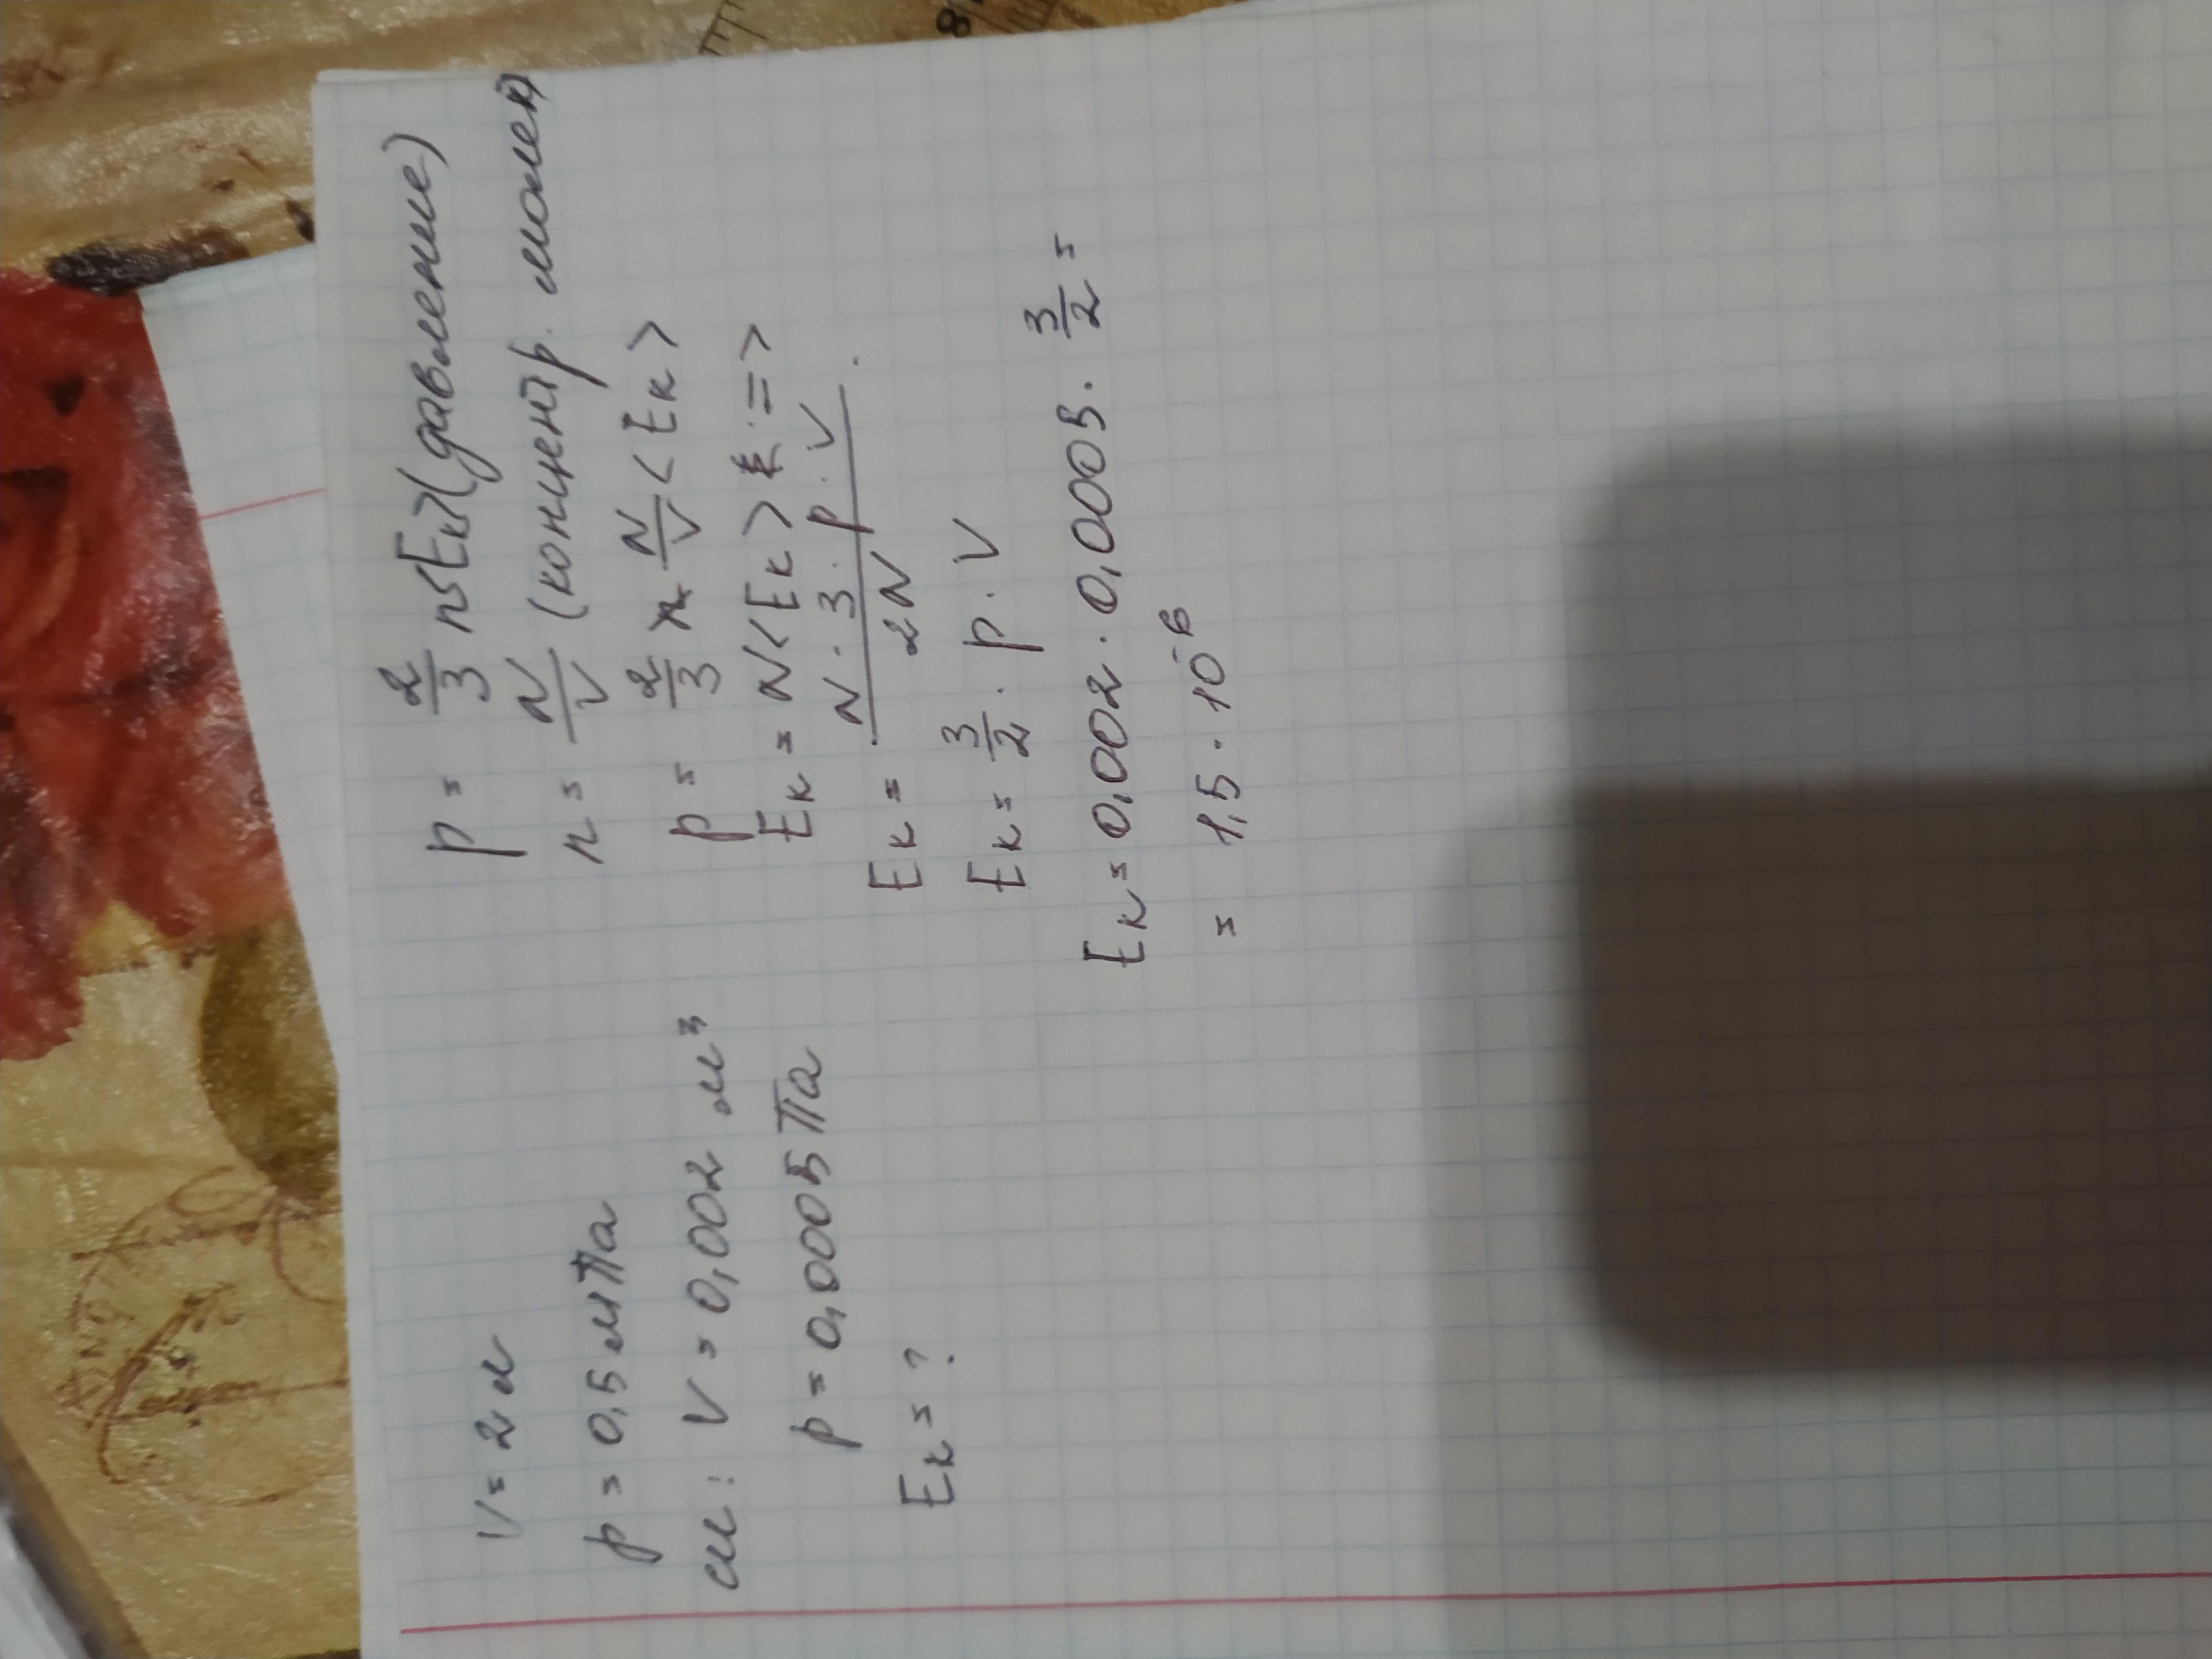 V = 2 л
p = 0,5 мПа
си: V = 0,002 м³
p = 0,0005 Па
Eк = ?
p = 2/3 n<Eк> (давление)
n = N/V (концентр. молек)
p = 2/3 N/V <Eк>
Eк = N<Eк> =>
Eк = N · 3 · p · V / 2N
Eк = 3/2 · p · V
Eк = 0,002 · 0,0005 · 3/2 =
= 1,5 · 10⁻⁶